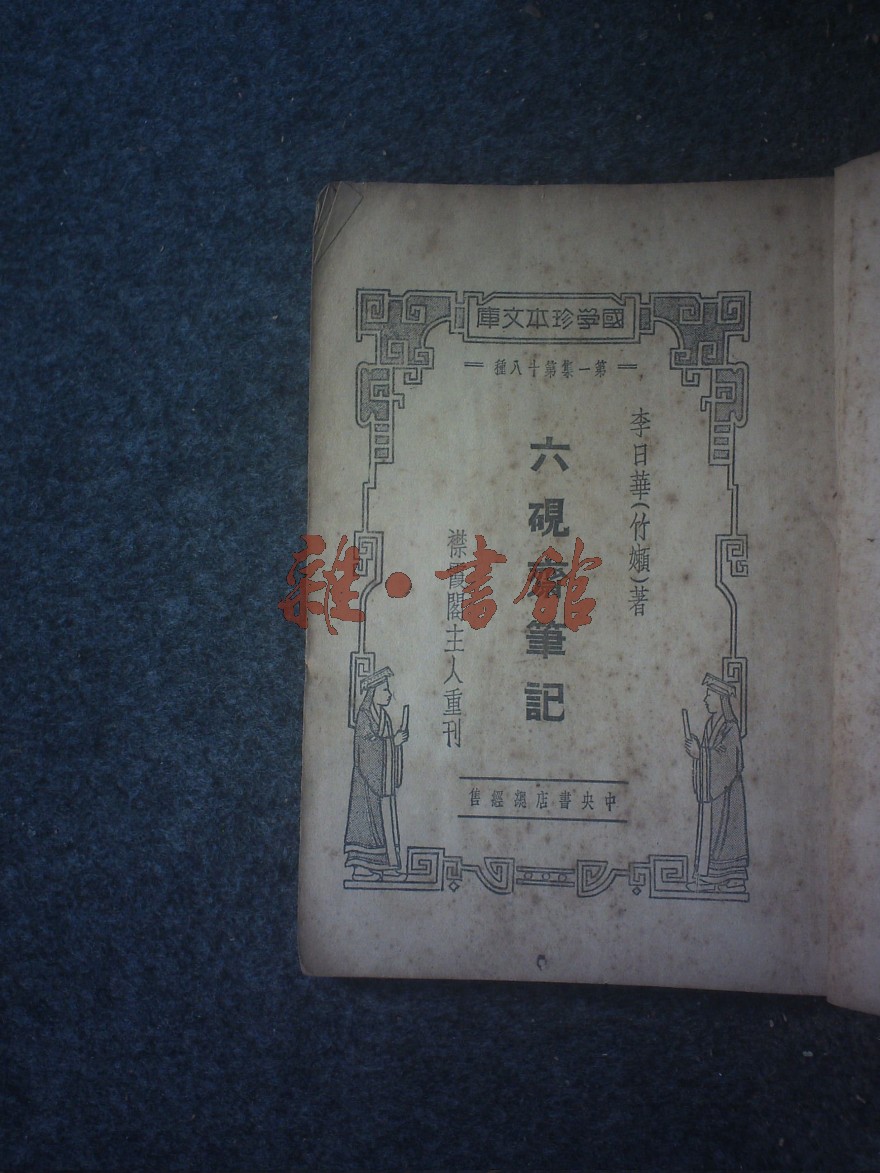 國學珍本文庫
第一集第十八種
李日華(竹嬾)著
六硯齋筆記
襟霞閣主人重刊
中央書店總經售
雜·書館